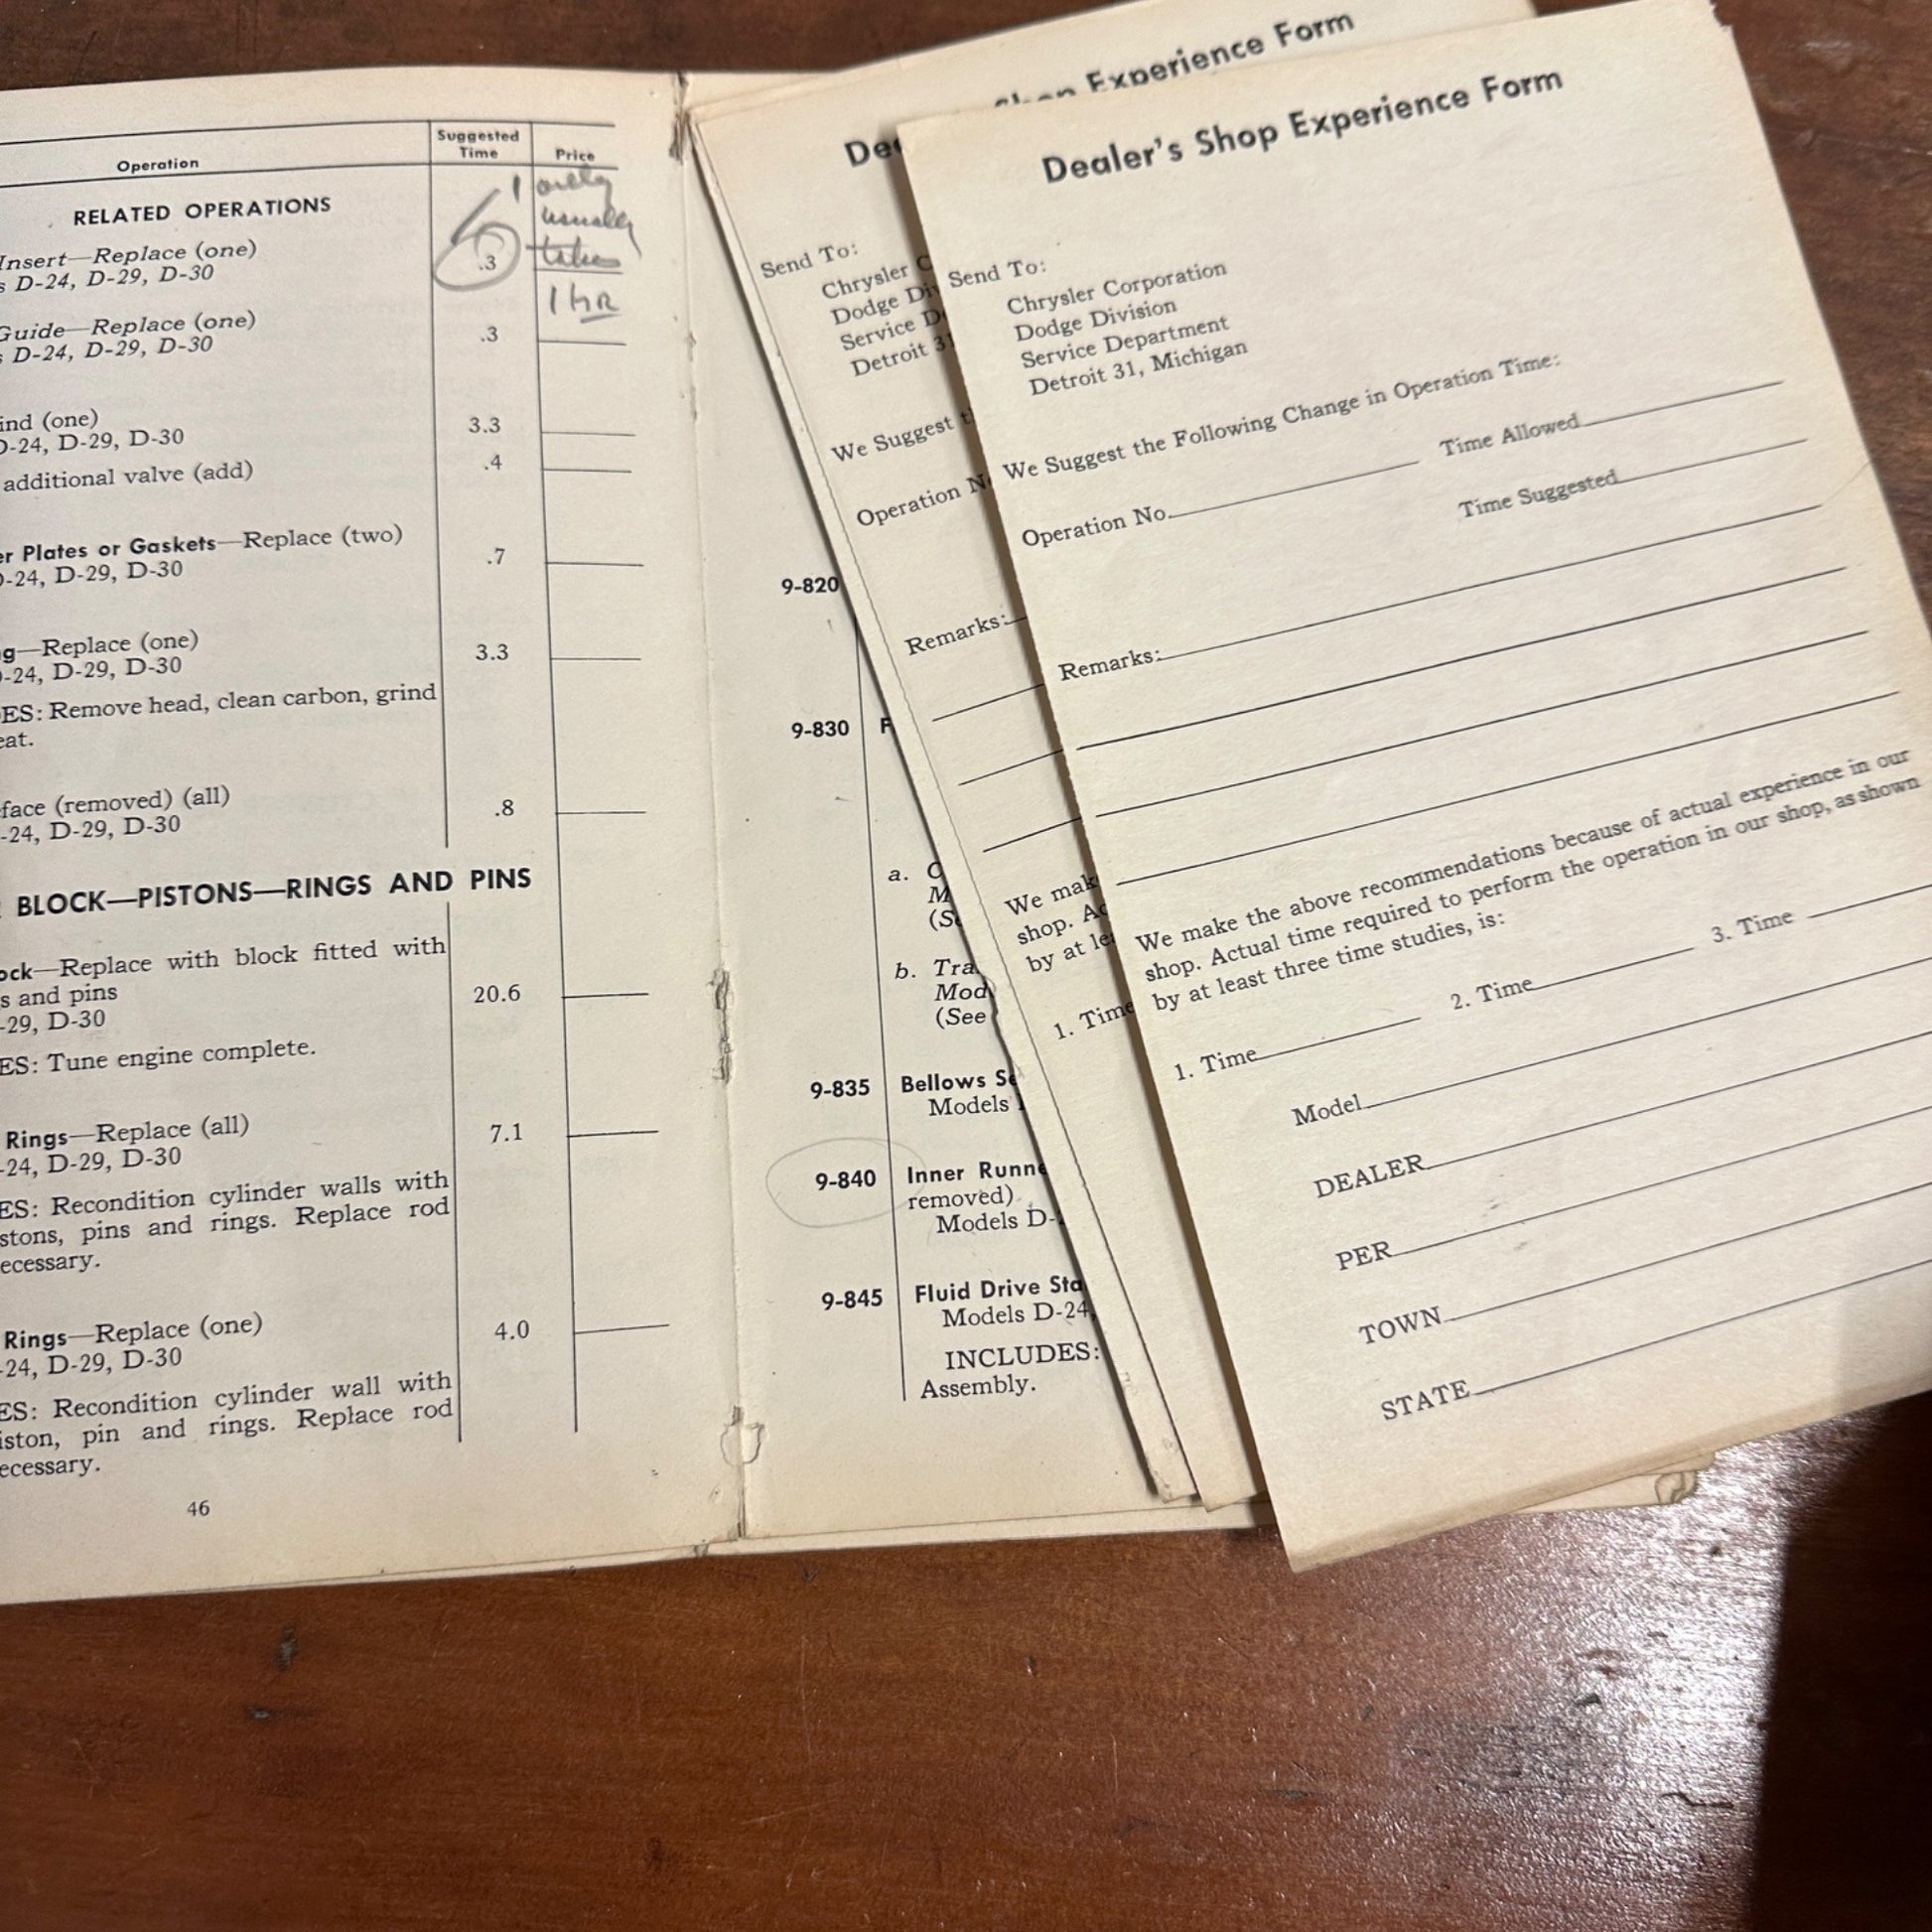 Operation
Suggested
Time
Price
RELATED OPERATIONS
Insert—Replace (one)
s D-24, D-29, D-30
.3
6
1 only
usually
takes
1 HR
Guide—Replace (one)
s D-24, D-29, D-30
.3
ind (one)
D-24, D-29, D-30
3.3
additional valve (add)
.4
er Plates or Gaskets—Replace (two)
D-24, D-29, D-30
.7
g—Replace (one)
-24, D-29, D-30
3.3
ES: Remove head, clean carbon, grind
eat.
face (removed) (all)
-24, D-29, D-30
.8
BLOCK—PISTONS—RINGS AND PINS
ock—Replace with block fitted with
s and pins
-29, D-30
20.6
ES: Tune engine complete.
Rings—Replace (all)
-24, D-29, D-30
7.1
ES: Recondition cylinder walls with
stons, pins and rings. Replace rod
ecessary.
Rings—Replace (one)
-24, D-29, D-30
4.0
ES: Recondition cylinder wall with
iston, pin and rings. Replace rod
ecessary.
46
9-820
9-830 F
a. C
M
(Se
b. Tra
Mod
(See
9-835 Bellows Se
Models
9-840 Inner Runne
removed)
Models D-
9-845 Fluid Drive Sta
Models D-24,
INCLUDES:
Assembly.
Shop Experience Form
Dea
Send To:
Chrysler C
Dodge Div
Service D
Detroit 31
We Suggest t
Operation No
Remarks:
We make
shop. Ac
by at lea
1. Time
Dealer's Shop Experience Form
Send To:
Chrysler Corporation
Dodge Division
Service Department
Detroit 31, Michigan
We Suggest the Following Change in Operation Time:
Operation No. Time Allowed
Time Suggested
Remarks:
We make the above recommendations because of actual experience in our
shop. Actual time required to perform the operation in our shop, as shown
by at least three time studies, is:
1. Time 2. Time 3. Time
Model
DEALER
PER
TOWN
STATE